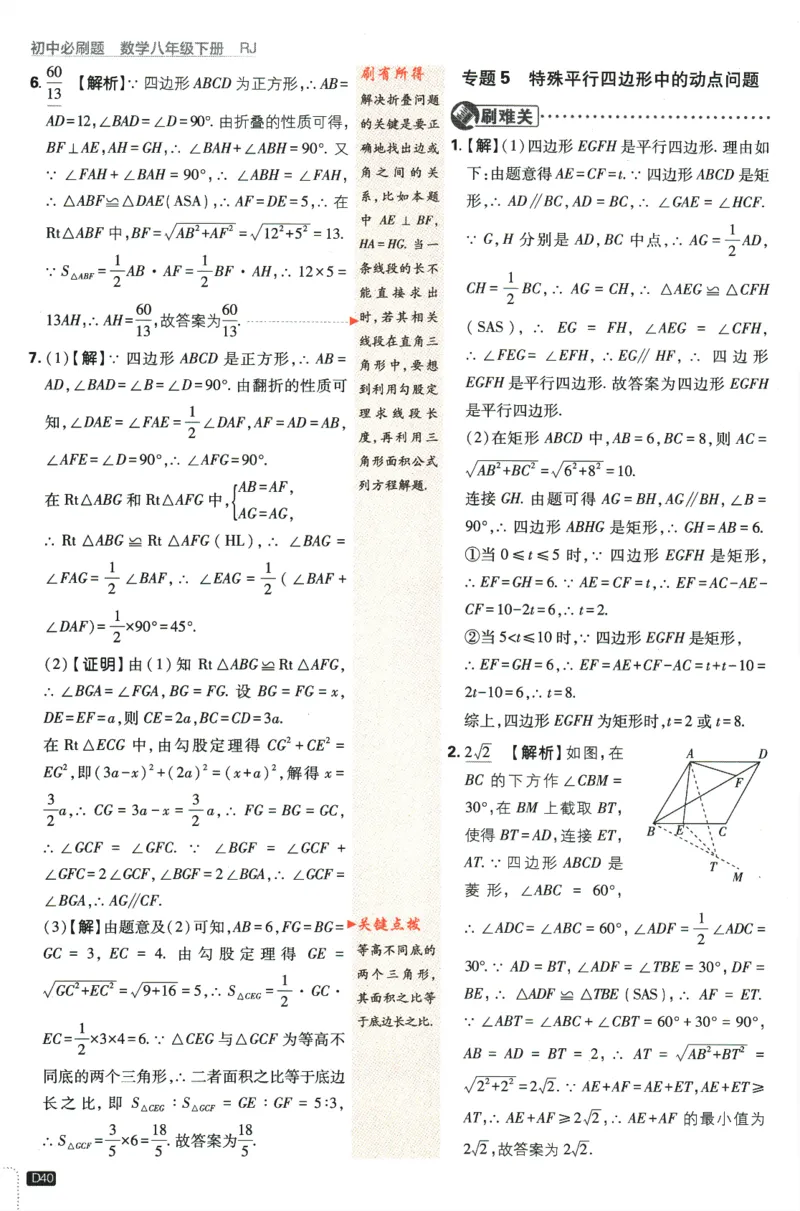 初中必刷题 数学八年级下册 RJ
6. 60/13 【解析】∵ 四边形 ABCD 为正方形,∴ AB=
AD=12,∠BAD=∠D=90°. 由折叠的性质可得,
BF⊥AE,AH=GH,∴ ∠BAH+∠ABH=90°. 又
∵ ∠FAH+∠BAH=90°,∴ ∠ABH=∠FAH,
∴ △ABF≌△DAE(ASA),∴ AF=DE=5,∴ 在
Rt△ABF 中,BF=√(AB²+AF²)=√(12²+5²)=13.
∵ S△ABF=1/2 AB·AF=1/2 BF·AH,∴ 12×5=
13AH,∴ AH=60/13,故答案为60/13.
7. (1)【解】∵ 四边形 ABCD 是正方形,∴ AB=
AD,∠BAD=∠B=∠D=90°. 由翻折的性质可
知,∠DAE=∠FAE=1/2∠DAF,AF=AD=AB,
∠AFE=∠D=90°,∴ ∠AFG=90°.
在 Rt△ABG 和 Rt△AFG 中,{AB=AF,
AG=AG,
∴ Rt△ABG≌Rt△AFG(HL),∴ ∠BAG=
∠FAG=1/2∠BAF,∴ ∠EAG=1/2(∠BAF+
∠DAF)=1/2×90°=45°.
(2)【证明】由(1)知 Rt△ABG≌Rt△AFG,
∴ ∠BGA=∠FGA,BG=FG. 设 BG=FG=x,
DE=EF=a,则 CE=2a,BC=CD=3a.
在 Rt△ECG 中,由勾股定理得 CG²+CE²=
EG²,即(3a-x)²+(2a)²=(x+a)²,解得 x=
3/2a,∴ CG=3a-x=3/2a,∴ FG=BG=GC,
∴ ∠GCF=∠GFC. ∵ ∠BGF=∠GCF+
∠GFC=2∠GCF,∠BGF=2∠BGA,∴ ∠GCF=
∠BGA,∴ AG∥CF.
(3)【解】由题意及(2)可知,AB=6,FG=BG=
GC=3,EC=4. 由勾股定理得 GE=
√(GC²+EC²)=√(9+16)=5,∴ S△CEG=1/2·GC·
EC=1/2×3×4=6. ∵ △CEG 与△GCF 为等高不
同底的两个三角形,∴ 二者面积之比等于底边
长之比,即 S△CEG:S△GCF=GE:GF=5:3,
∴ S△GCF=3/5×6=18/5. 故答案为18/5.
D40
刷有所得
解决折叠问题
的关键是要正
确地找出边或
角之间的关
系,比如本题
中 AE⊥BF,
HA=HG. 当一
条线段的长不
能直接求出
时,若其相关
线段在直角三
角形中,要想
到利用勾股定
理求线段长
度,再利用三
角形面积公式
列方程解题.
关键点拨
等高不同底的
两个三角形,
其面积之比等
于底边长之比.
专题5 特殊平行四边形中的动点问题
刷难关
1.【解】(1)四边形 EGFH 是平行四边形. 理由如
下:由题意得 AE=CF=t. ∵ 四边形 ABCD 是矩
形,∴ AD∥BC,AD=BC,∴ ∠GAE=∠HCF.
∵ G,H 分别是 AD,BC 中点,∴ AG=1/2AD,
CH=1/2BC,∴ AG=CH,∴ △AEG≌△CFH
(SAS),∴ EG=FH,∠AEG=∠CFH,
∴ ∠FEG=∠EFH,∴ EG∥HF,∴ 四边形
EGFH 是平行四边形. 故答案为四边形 EGFH
是平行四边形.
(2)在矩形 ABCD 中,AB=6,BC=8,则 AC=
√(AB²+BC²)=√(6²+8²)=10.
连接 GH. 由题可得 AG=BH,AG∥BH,∠B=
90°,∴ 四边形 ABHG 是矩形,∴ GH=AB=6.
①当 0≤t≤5 时,∵ 四边形 EGFH 是矩形,
∴ EF=GH=6. ∵ AE=CF=t,∴ EF=AC-AE-
CF=10-2t=6,∴ t=2.
②当5<t≤10时,∵ 四边形 EGFH 是矩形,
∴ EF=GH=6,∴ EF=AE+CF-AC=t+t-10=
2t-10=6,∴ t=8.
综上,四边形 EGFH 为矩形时,t=2 或 t=8.
2. 2√2 【解析】如图,在
BC 的下方作∠CBM=
30°,在 BM 上截取 BT,
使得 BT=AD,连接 ET,
AT. ∵ 四边形 ABCD 是
菱形,∠ABC=60°,
A D
F
B E C
T
M
∴ ∠ADC=∠ABC=60°,∠ADF=1/2∠ADC=
30°. ∵ AD=BT,∠ADF=∠TBE=30°,DF=
BE,∴ △ADF≌△TBE(SAS),∴ AF=ET.
∵ ∠ABT=∠ABC+∠CBT=60°+30°=90°,
AB=AD=BT=2,∴ AT=√(AB²+BT²)=
√(2²+2²)=2√2. ∵ AE+AF=AE+ET,AE+ET≥
AT,∴ AE+AF≥2√2,∴ AE+AF 的最小值为
2√2,故答案为 2√2.